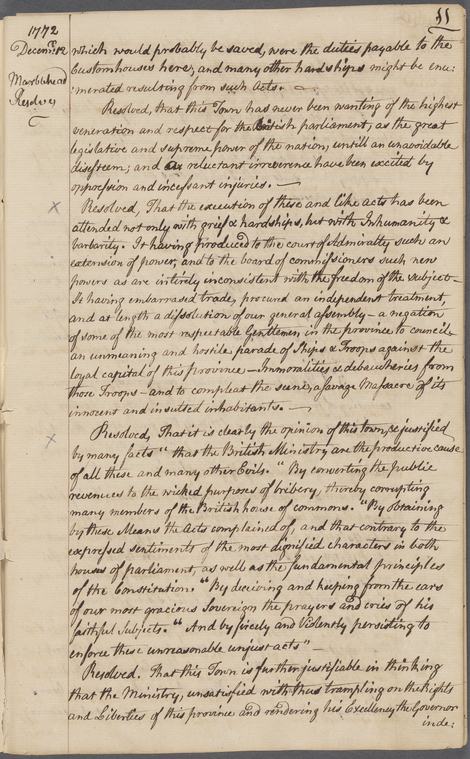 11
1772
Decemr. 12
Marblehead
Resolves
which would probably be saved, were the duties payable to the
Customhouses here; and many other hardships might be enu:
:merated resulting from such Acts.
Resolved, that this Town has never been wanting of the highest
veneration and respect for the British parliament, as the great
legislative and supreme power of the nation, untill an unavoidable
disesteem; and a reluctant irreverence have been excited by
oppression and incessant injuries. —
x
Resolved, That the execution of these and like acts has been
attended not only with grief & hardships, but with Inhumanity &
barbarity. It having produced to the court of Admiralty such an
extension of power, and to the board of commissioners such new
powers as are intirely inconsistent with the freedom of the subject—
Its having embarrased trade, procured an independent treatment,
and at length a dissolution of our general assembly – a negation
of some of the most respectable Gentlemen in the province to council–
an unmeaning and hostile parade of Ships & Troops against the
loyal capital of this province – Immoralities & debaucheries from
those Troops – and to compleat the scene, a savage Massacre of its
innocent and insulted inhabitants. —
x
Resolved, That it is clearly the opinion of this town, & justified
by many facts "that the British Ministry are the productive cause
of all these and many other Evils. "By converting the public
revenues to the wicked purposes of bribery, thereby corrupting
many members of the British house of commons. "By obtaining
by these Means the Acts complained of, and that contrary to the
expressed sentiments of the most dignified characters in both
houses of parliament, as well as the fundamental principles
of the Constitution. "By deceiving and keeping from the ears
of our most gracious Sovereign the prayers and cries of his
faithful Subjects. "And by fircely and Violently persisting to
enforce these unreasonable unjust acts" –
Resolved. That this Town is further justifiable in thinking
that the Ministry, unsatisfied with thus trampling on the Rights
and Liberties of this province and rendering his Excellency the Governor
inde: